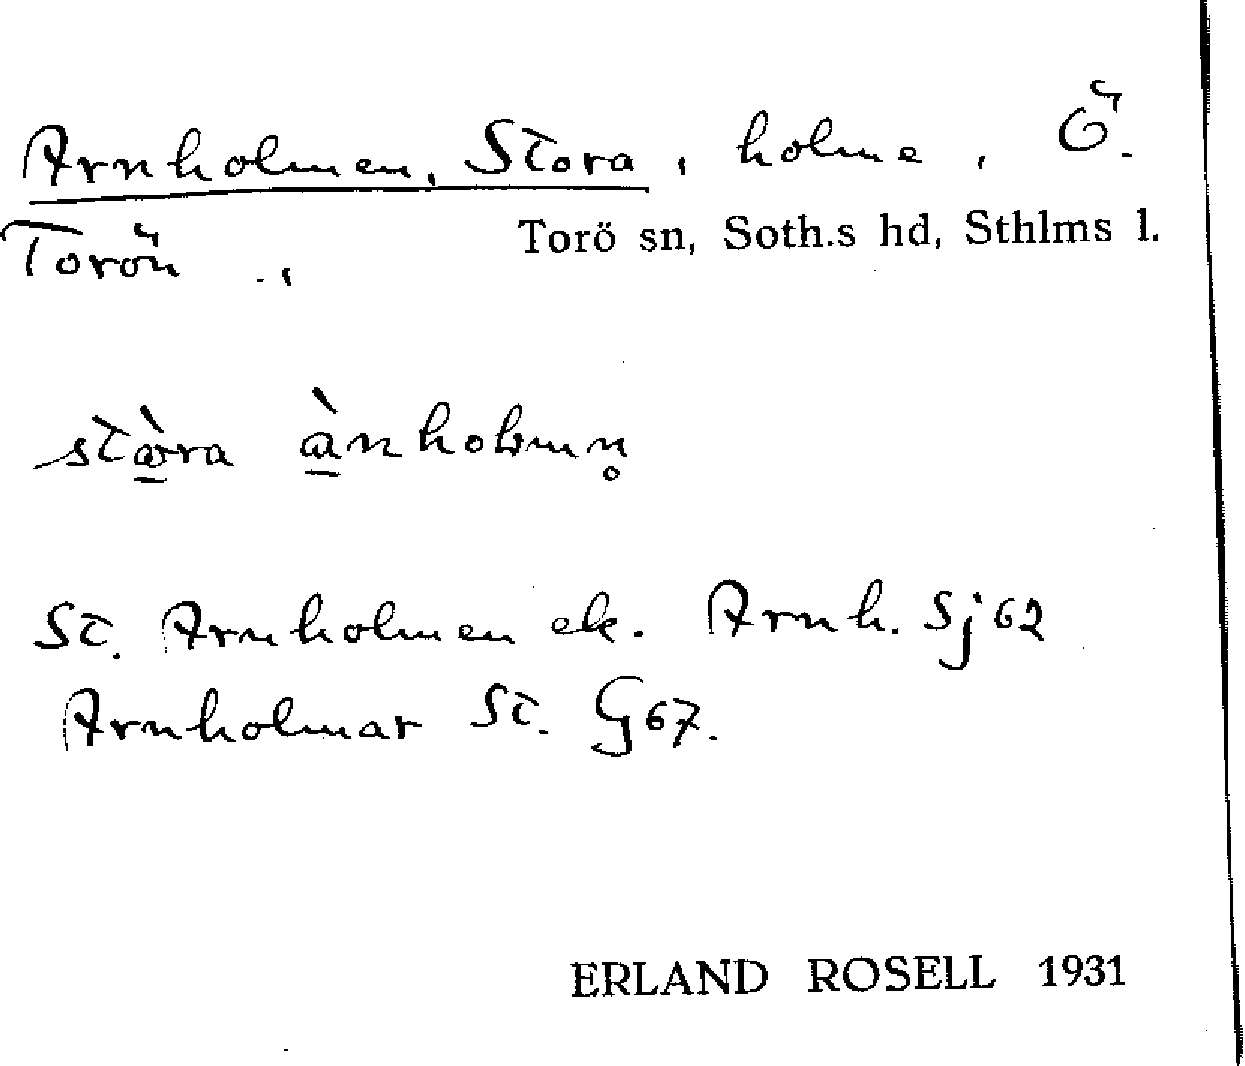 Arnholmen, Stora, holme, Ö.
Torön ., Torö sn, Soth.s hd, Sthlms l.
stòra ànholmn̥
St. Arnholmen ek. Arnh. Sj 62
Arnholmar St. G 67.
ERLAND ROSELL 1931